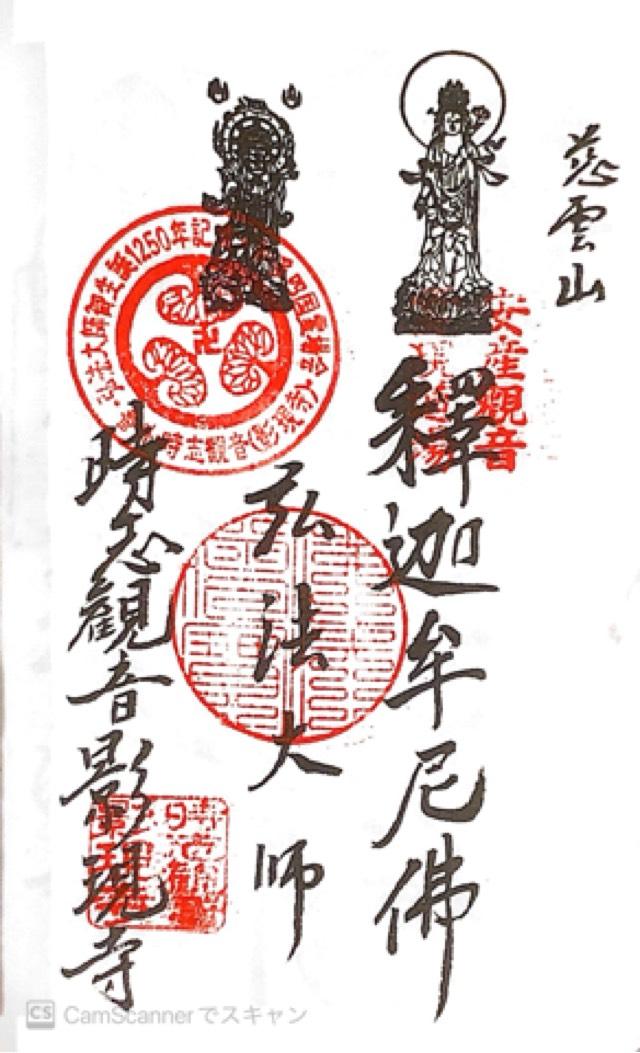 慈雲山
安産觀音
釋迦牟尼佛
弘法大師
弘法大師御生誕1250年記
四国霊場会
時志觀音(影現寺)
時志觀音影現寺
CS CamScannerでスキャン